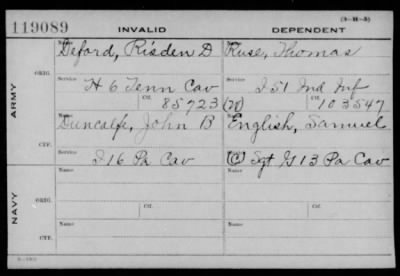 (3-H-5)
119089 INVALID DEPENDENT
Name Name
Deford, Risden D Ruse, Thomas
ORIG.
Service Service
H 6 Tenn Cav I 51 Ind Inf
Ctf. Ctf.
85723 (78) 103547
ARMY
Name Name
Duncalfe, John B English, Samuel
CTF.
Service Service
I 16 Pa Cav (C) Sgt G 13 Pa Cav
Name Name
ORIG.
Service Ctf. Service Ctf.
NAVY
Name Name
CTF.
Service Service